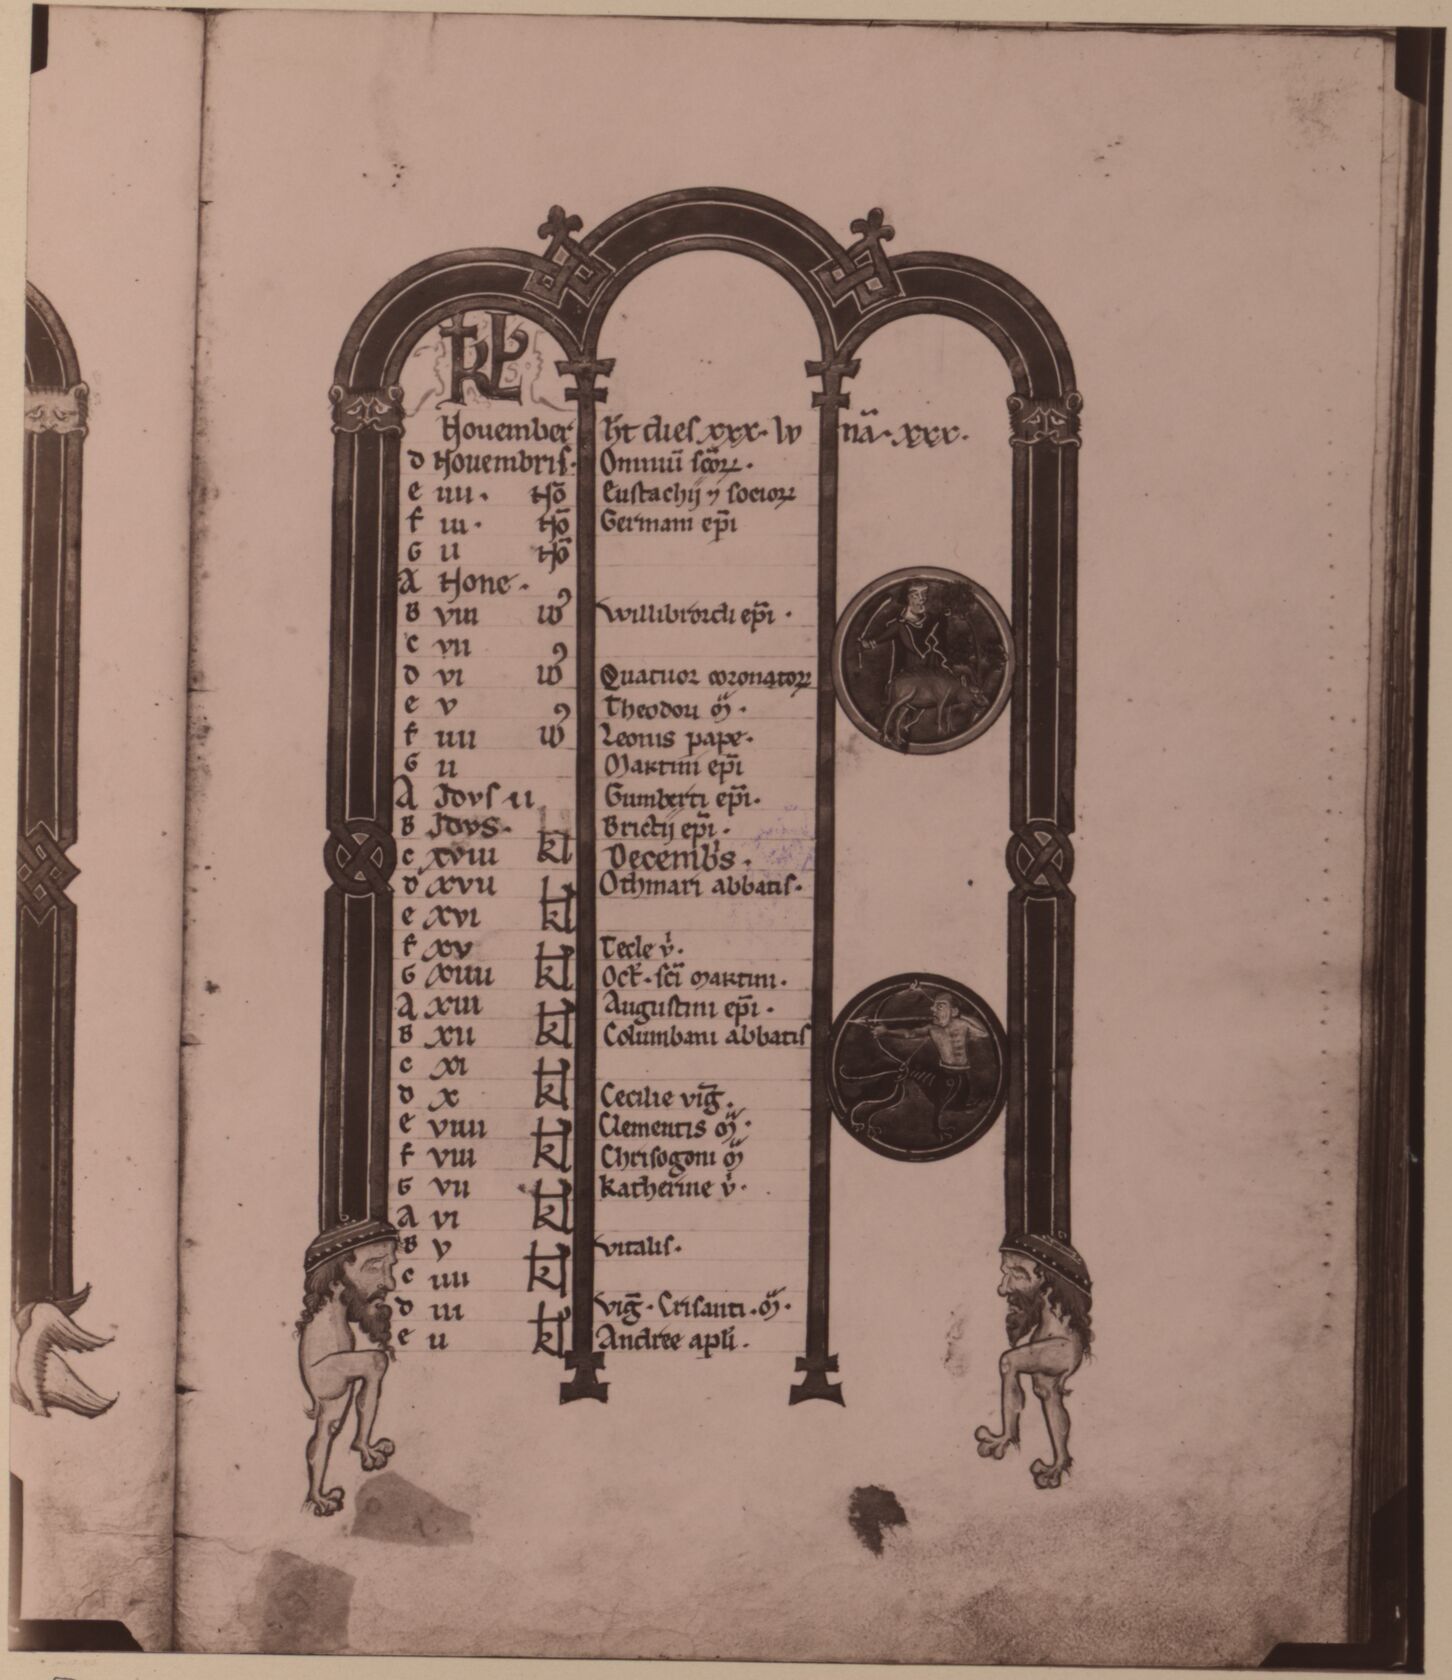 KL
November ht dies xxx. lv na. xxx.
d Novembris. Omniū scōꝝ.
e iiii. Nō Eustachij ⁊ socioꝝ
f iii. Nō Germani ep̄i
G ii Nō
A None.
B viii Willibrordi ep̄i.
c vii
d vi Quatuor coronatoꝝ
e v Theodori m̄.
f iiii Leonis pape.
G ii Martini ep̄i
A Idus ii Gumberti ep̄i.
B Idus. Brictij ep̄i.
c xviii kl Decembs.
d xvii kl Othmari abbatis.
e xvi kl
f xv kl Tecle v̄.
G xiiii kl Oct̄. sc̄i Martini.
A xiii kl Augustini ep̄i.
B xii kl Columbani abbatis
c xi kl
d x kl Cecilie virḡ.
e viiii kl Clementis m̄.
f viii kl Chrisogoni m̄
G vii kl Katherine v̄.
A vi kl
B v kl Vitalis.
c iiii kl
d iii kl Vig̅. Crisanti. m̄.
e ii kl Andree apli.